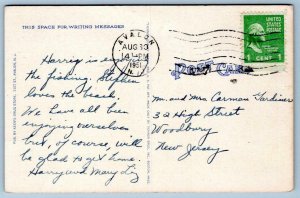 THIS SPACE FOR WRITING MESSAGES
AVALON
AUG 13
4 PM
1951
N.J.
POST CARD
1
CENT
Harry is enjoying
the fishing.
loves the beach.
We have all been
enjoying ourselves
but, of course, will
be glad to get home.
Harry and Mary Liz
Mr. and Mrs Carman Gardiner
32 High Street
Woodbury
New Jersey